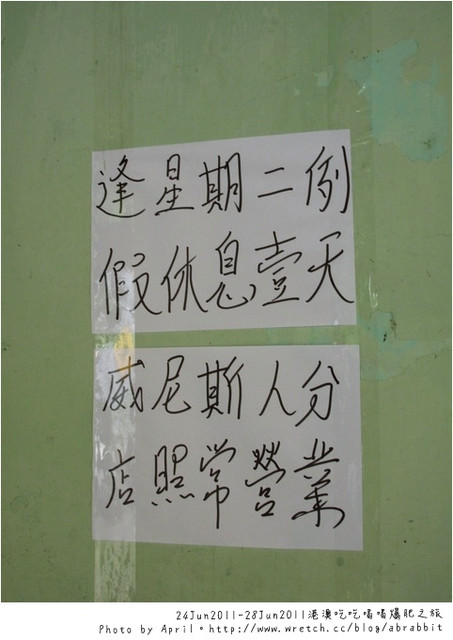 逢星期二例
假休息壹天
威尼斯人分
店照常營業
24Jun2011-28Jun2011港澳吃吃喝喝爆肥之旅
Photo by April。http://www.wretch.cc/blog/abrabbit